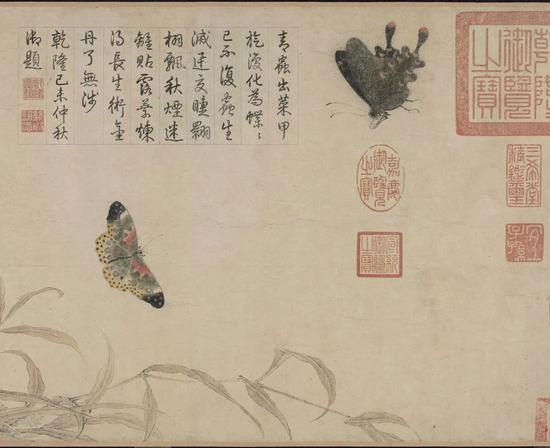 青蟲出菜甲
旋復化為蝶〻
已不復蟲生
滅交睫翾
栩飄秋煙迷
離貼露葉煉
得長生術金
丹了無涉
乾隆己未仲秋
御題
乾隆御覽之寶
嘉慶御覽之寶
三希堂精鑑璽
宣統御覽之寶
宜子孫